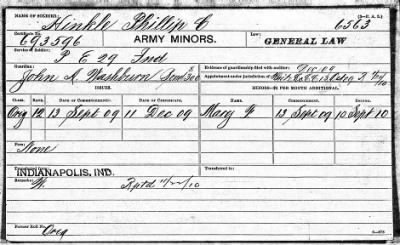 NAME OF SOLDIER: (3-E. A. L.)
Hinkle Phillip C 6563
Certificate No. ARMY MINORS. Law:
693596 GENERAL LAW
Service of Soldier:
E 29 Ind
Guardian: Evidence of guardianship filed with auditor: Dec 09
John A. Washburn Appointment under jurisdiction of
ISSUE. MINORS—$2 PER MONTH ADDITIONAL.
CLASS. RATE. DATE OF COMMENCEMENT. DATE OF CERTIFICATE. NAME. COMMENCING. ENDING.
Orig 12 13 Sept 09 11 Dec 09 Mary F 13 Sept 09 10 Sept 10
From:
None
Transferred from: Transferred to:
INDIANAPOLIS, IND.
Remarks:
W. Rptd 11/22/10
Former Roll No.
Orig